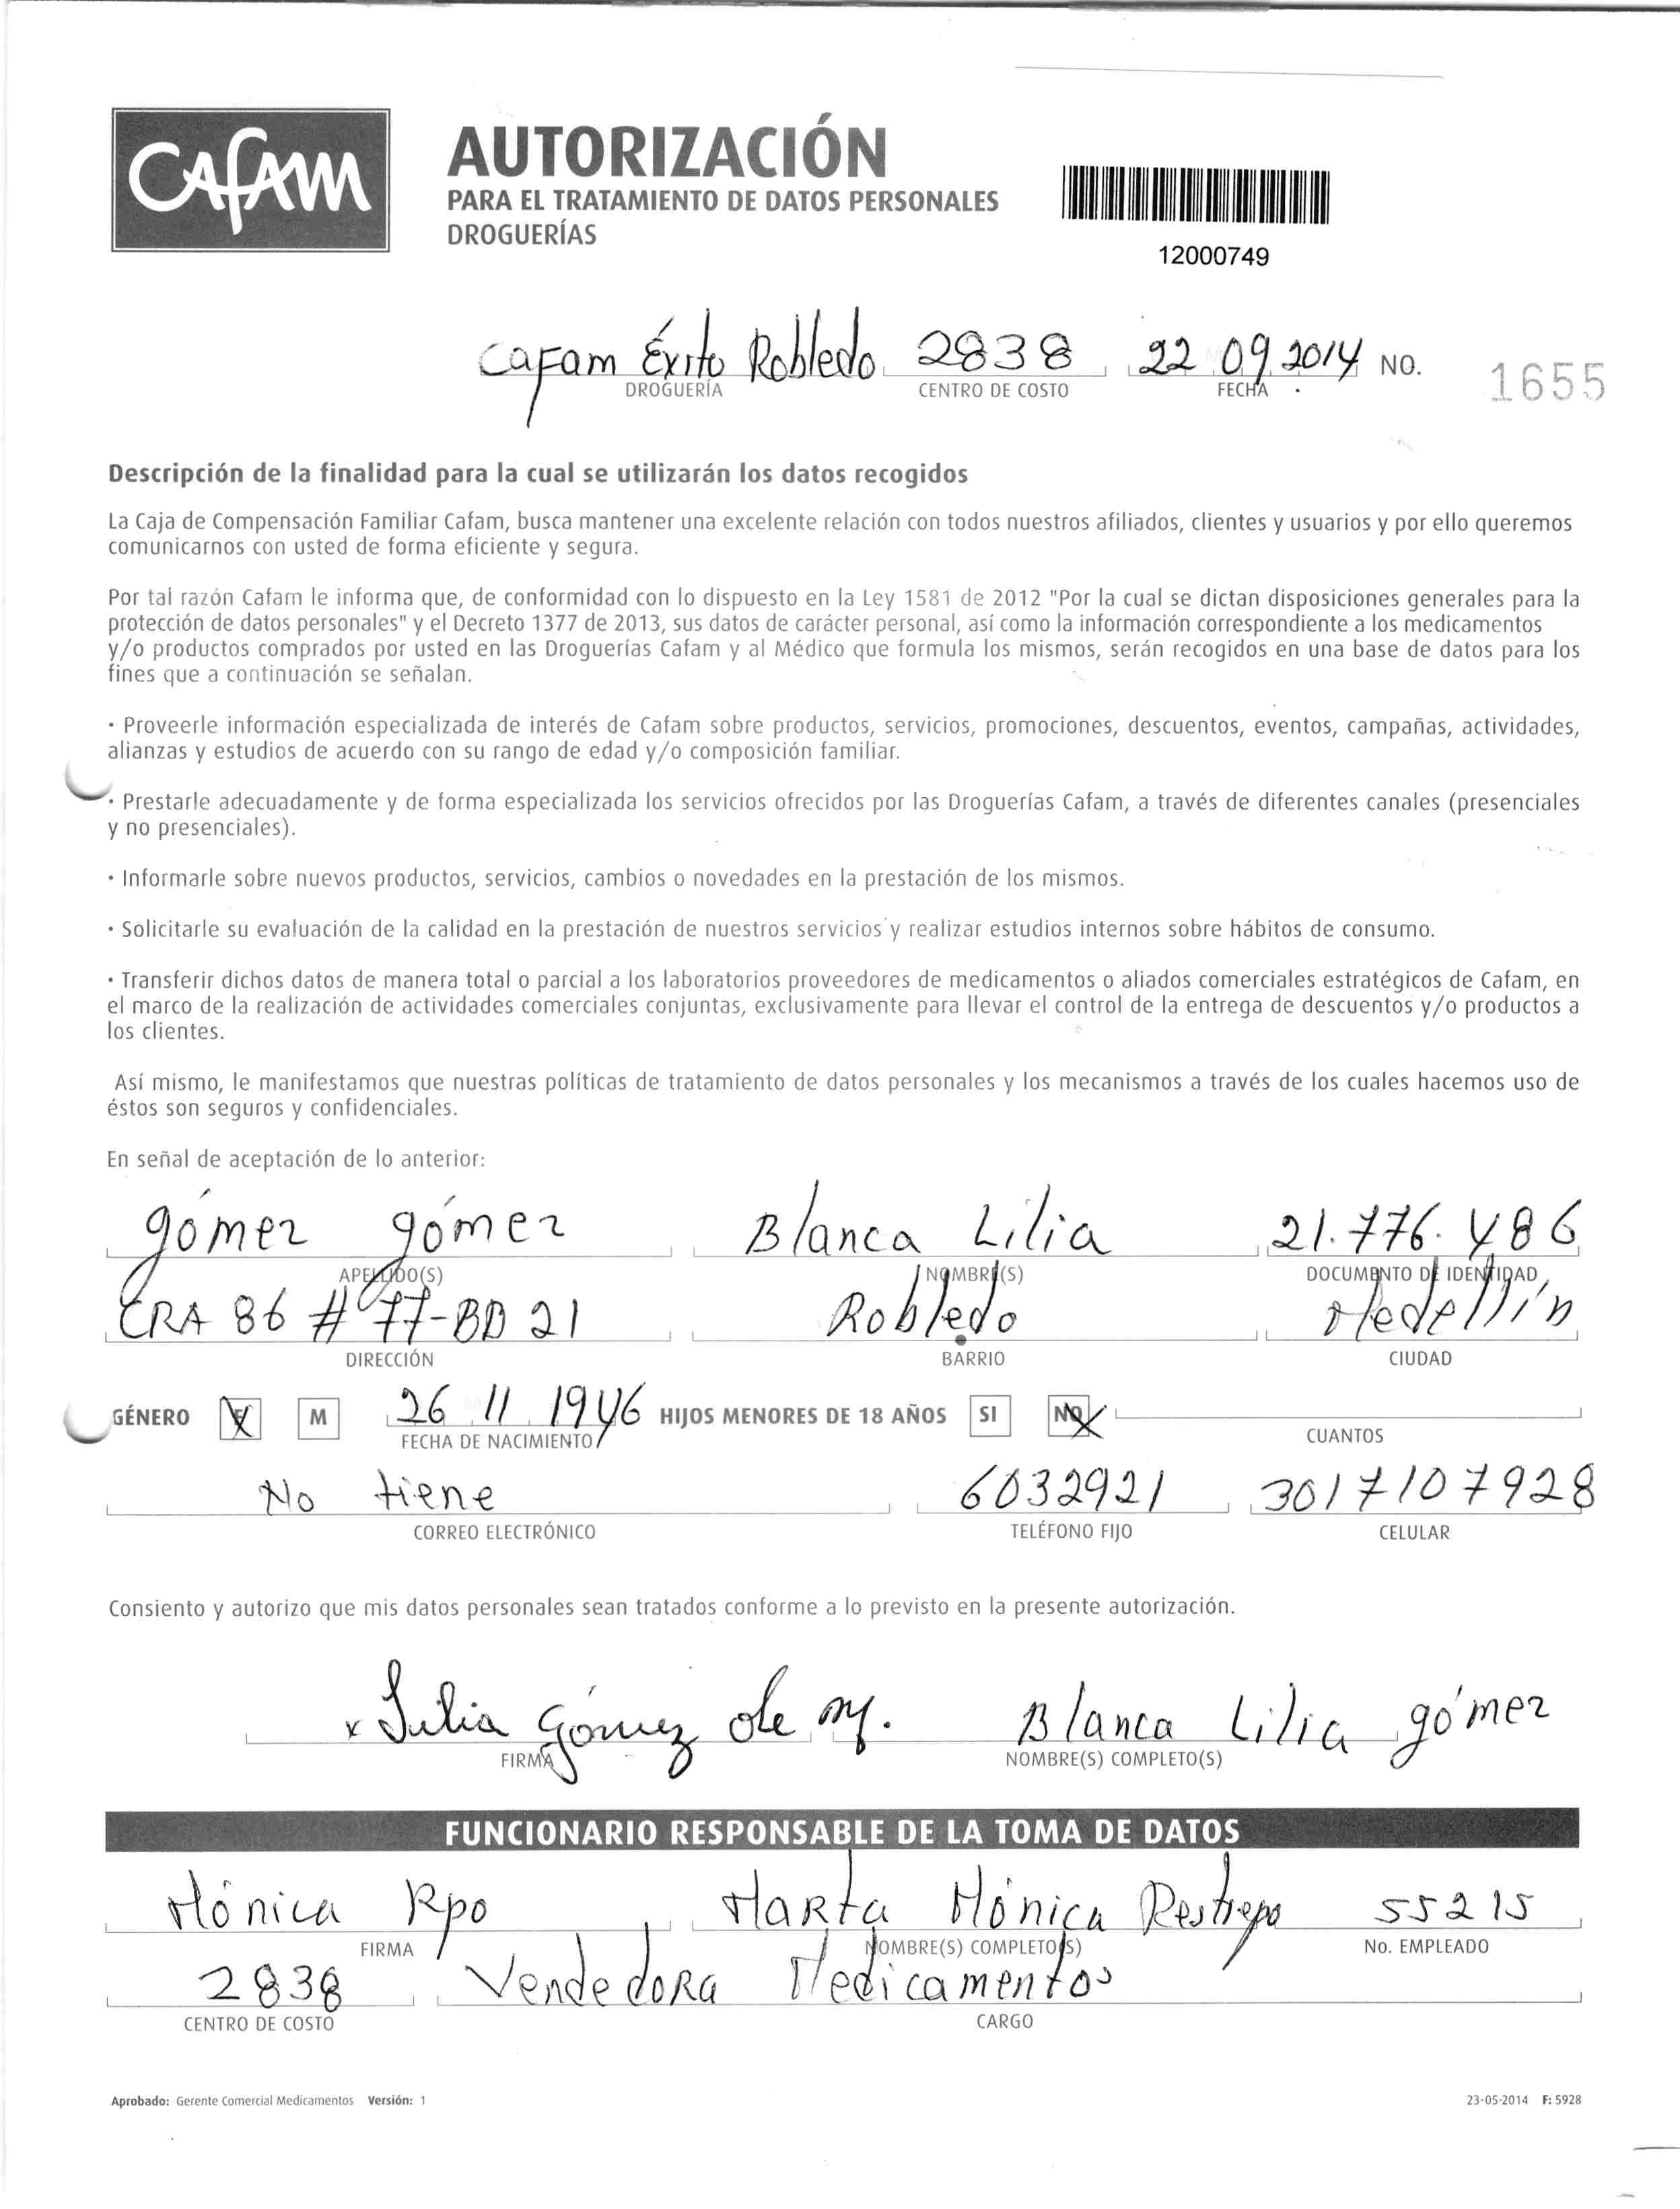 CAFAM
AUTORIZACIÓN
PARA EL TRATAMIENTO DE DATOS PERSONALES
DROGUERÍAS
12000749
Cafam Éxito Robledo 2838 22 09 2014 NO. 1655
DROGUERÍA CENTRO DE COSTO FECHA
Descripción de la finalidad para la cual se utilizarán los datos recogidos
La Caja de Compensación Familiar Cafam, busca mantener una excelente relación con todos nuestros afiliados, clientes y usuarios y por ello queremos
comunicarnos con usted de forma eficiente y segura.
Por tal razón Cafam le informa que, de conformidad con lo dispuesto en la Ley 1581 de 2012 "Por la cual se dictan disposiciones generales para la
protección de datos personales" y el Decreto 1377 de 2013, sus datos de carácter personal, así como la información correspondiente a los medicamentos
y/o productos comprados por usted en las Droguerías Cafam y al Médico que formula los mismos, serán recogidos en una base de datos para los
fines que a continuación se señalan.
· Proveerle información especializada de interés de Cafam sobre productos, servicios, promociones, descuentos, eventos, campañas, actividades,
alianzas y estudios de acuerdo con su rango de edad y/o composición familiar.
· Prestarle adecuadamente y de forma especializada los servicios ofrecidos por las Droguerías Cafam, a través de diferentes canales (presenciales
y no presenciales).
· Informarle sobre nuevos productos, servicios, cambios o novedades en la prestación de los mismos.
· Solicitarle su evaluación de la calidad en la prestación de nuestros servicios y realizar estudios internos sobre hábitos de consumo.
· Transferir dichos datos de manera total o parcial a los laboratorios proveedores de medicamentos o aliados comerciales estratégicos de Cafam, en
el marco de la realización de actividades comerciales conjuntas, exclusivamente para llevar el control de la entrega de descuentos y/o productos a
los clientes.
Así mismo, le manifestamos que nuestras políticas de tratamiento de datos personales y los mecanismos a través de los cuales hacemos uso de
éstos son seguros y confidenciales.
En señal de aceptación de lo anterior:
gómez gómez Blanca Lilia 21.776.486
APELLIDO(S) NOMBRE(S) DOCUMENTO DE IDENTIDAD
CRA 86 # 77-BD 21 Robledo Medellín
DIRECCIÓN BARRIO CIUDAD
GÉNERO F M 26 11 1946 HIJOS MENORES DE 18 AÑOS SI NO
FECHA DE NACIMIENTO CUANTOS
No tiene 6032921 3017107928
CORREO ELECTRÓNICO TELÉFONO FIJO CELULAR
Consiento y autorizo que mis datos personales sean tratados conforme a lo previsto en la presente autorización.
x Lilia Gómez de M. Blanca Lilia gómez
FIRMA NOMBRE(S) COMPLETO(S)
FUNCIONARIO RESPONSABLE DE LA TOMA DE DATOS
Mónica Rpo Marta Mónica Restrepo 55215
FIRMA NOMBRE(S) COMPLETO(S) No. EMPLEADO
2838 Vendedora Medicamentos
CENTRO DE COSTO CARGO
Aprobado: Gerente Comercial Medicamentos Versión: 1 23-05-2014 F: 5928